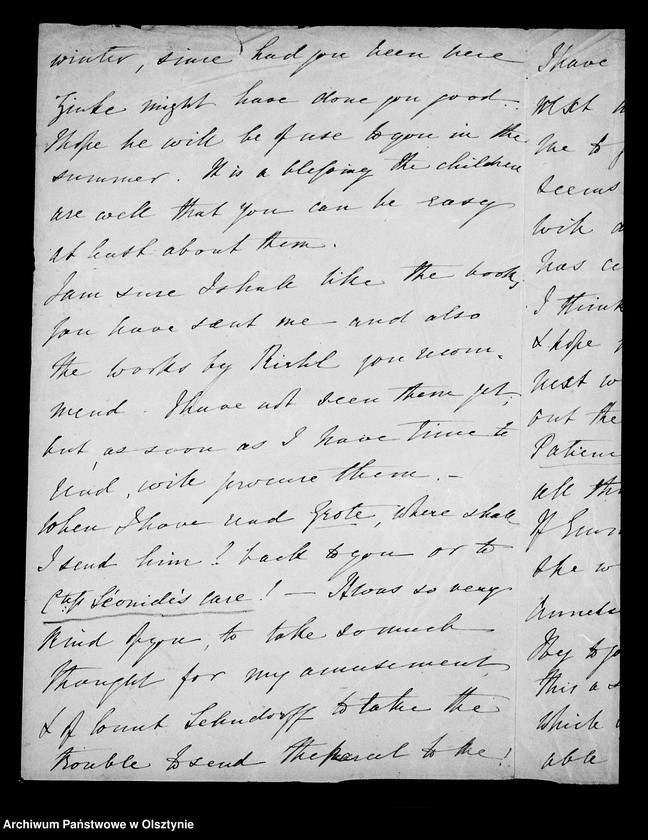 winter, since had you been here
Zinke might have done you good.
I hope he will be of use to you in the
summer. It is a blessing the children
are well that you can be easy
at least about them.
I am sure I shall like the books
you have sent me and also
the works by Riehl you recom-
mend. I have not seen them yet,
but, as soon as I have time to
read, will procure them. –
When I have read Grote, where shall
I send him? back to you or to
Léonide's care! – It was so very
kind of you, to take so much
thought for my amusement
& of Count Lehndorff to take the
trouble to send the parcel to me!
I have
next
me to
seems
with
has
I think
& hope
next
out the
all
If
the
this a
which
able
Archiwum Państwowe w Olsztynie